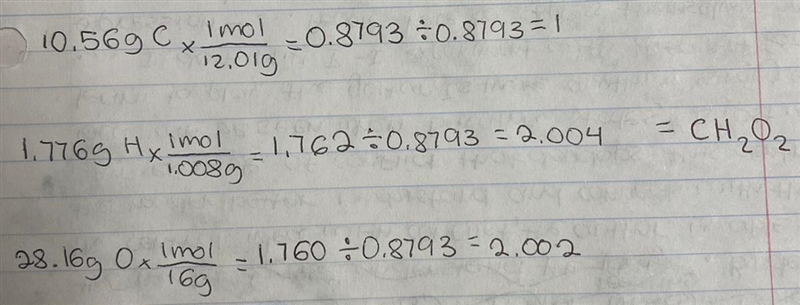 10.56g C × 1mol/12.01g = 0.8793 ÷ 0.8793 = 1
1.776g H × 1mol/1.008g = 1.762 ÷ 0.8793 = 2.004 = CH₂O₂
28.16g O × 1mol/16g = 1.760 ÷ 0.8793 = 2.002